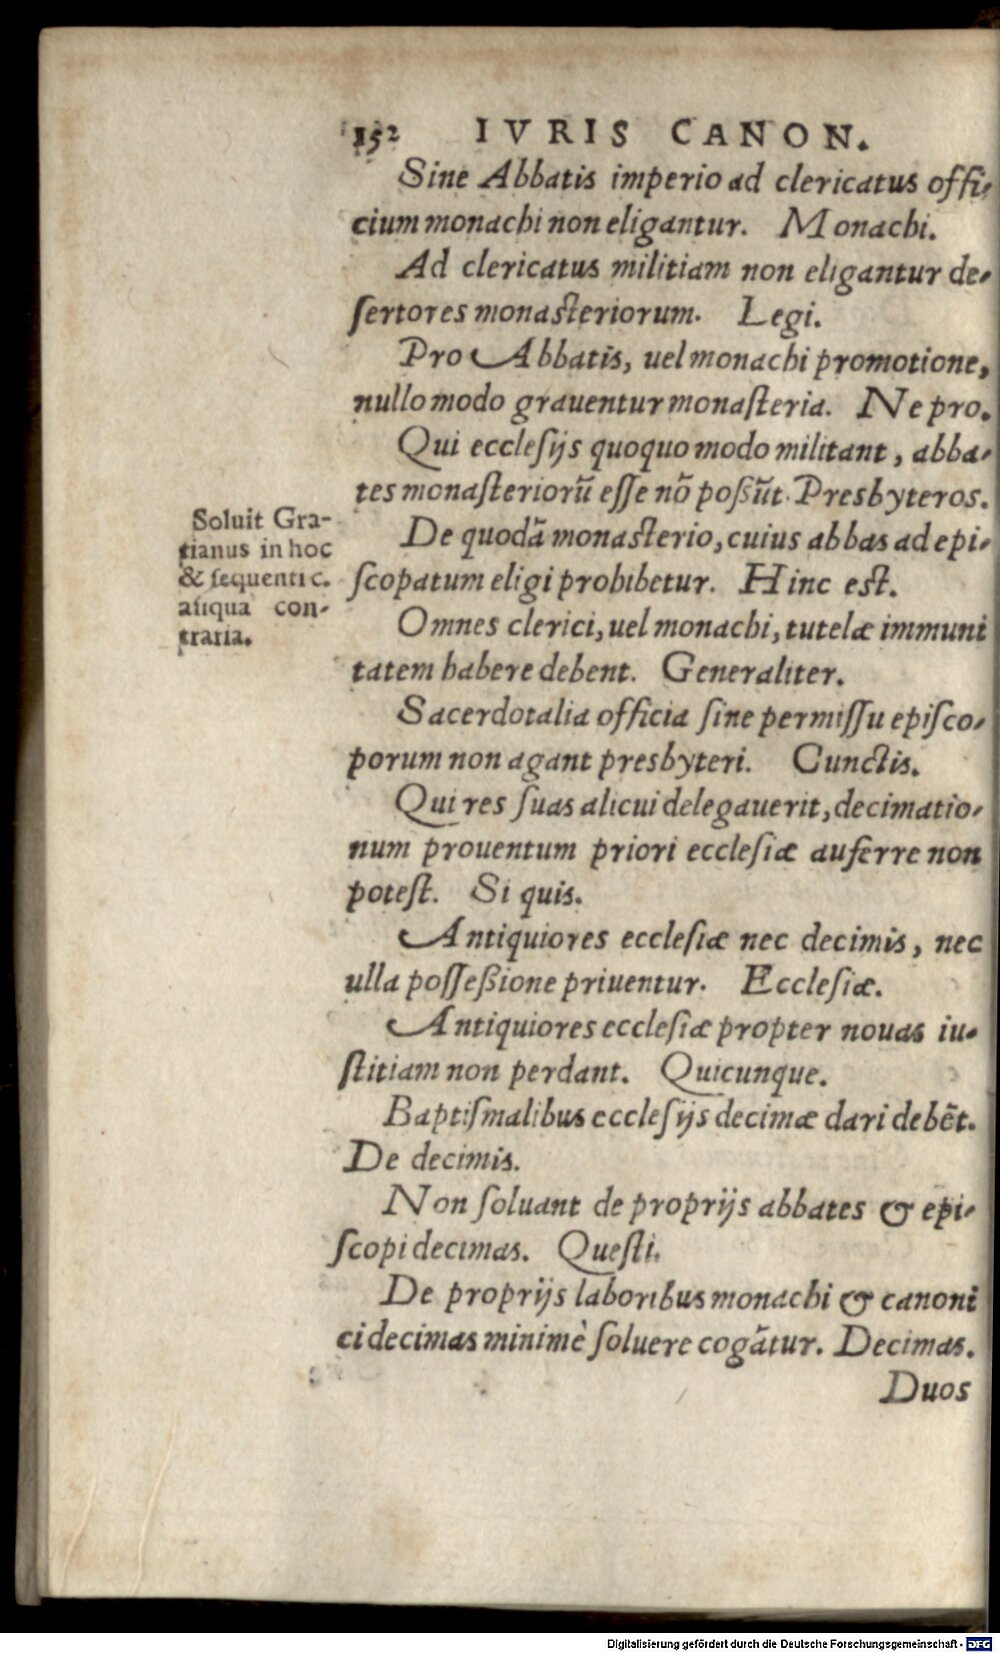 152 IVRIS CANON.
Sine Abbatis imperio ad clericatus offi-
cium monachi non eligantur. Monachi.
Ad clericatus militiam non eligantur de-
sertores monasteriorum. Legi.
Pro Abbatis, uel monachi promotione,
nullo modo grauentur monasteria. Ne pro.
Qui ecclesijs quoquo modo militant, abba-
tes monasteriorũ esse nõ possũt. Presbyteros.
De quodã monasterio, cuius abbas ad epi-
scopatum eligi prohibetur. Hinc est.
Soluit Gra-
tianus in hoc
& sequenti c.
aliqua con-
traria.
Omnes clerici, uel monachi, tutelæ immuni
tatem habere debent. Generaliter.
Sacerdotalia officia sine permissu episco-
porum non agant presbyteri. Cunctis.
Qui res suas alicui delegauerit, decimatio-
num prouentum priori ecclesiæ auferre non
potest. Si quis.
Antiquiores ecclesiæ nec decimis, nec
ulla possessione priuentur. Ecclesiæ.
Antiquiores ecclesiæ propter nouas iu-
stitiam non perdant. Quicunque.
Baptismalibus ecclesijs decimæ dari debẽt.
De decimis.
Non soluant de proprijs abbates & epi-
scopi decimas. Questi.
De proprijs laboribus monachi & canoni
ci decimas minimè soluere cogãtur. Decimas.
Duos
Digitalisierung gefördert durch die Deutsche Forschungsgemeinschaft - DFG